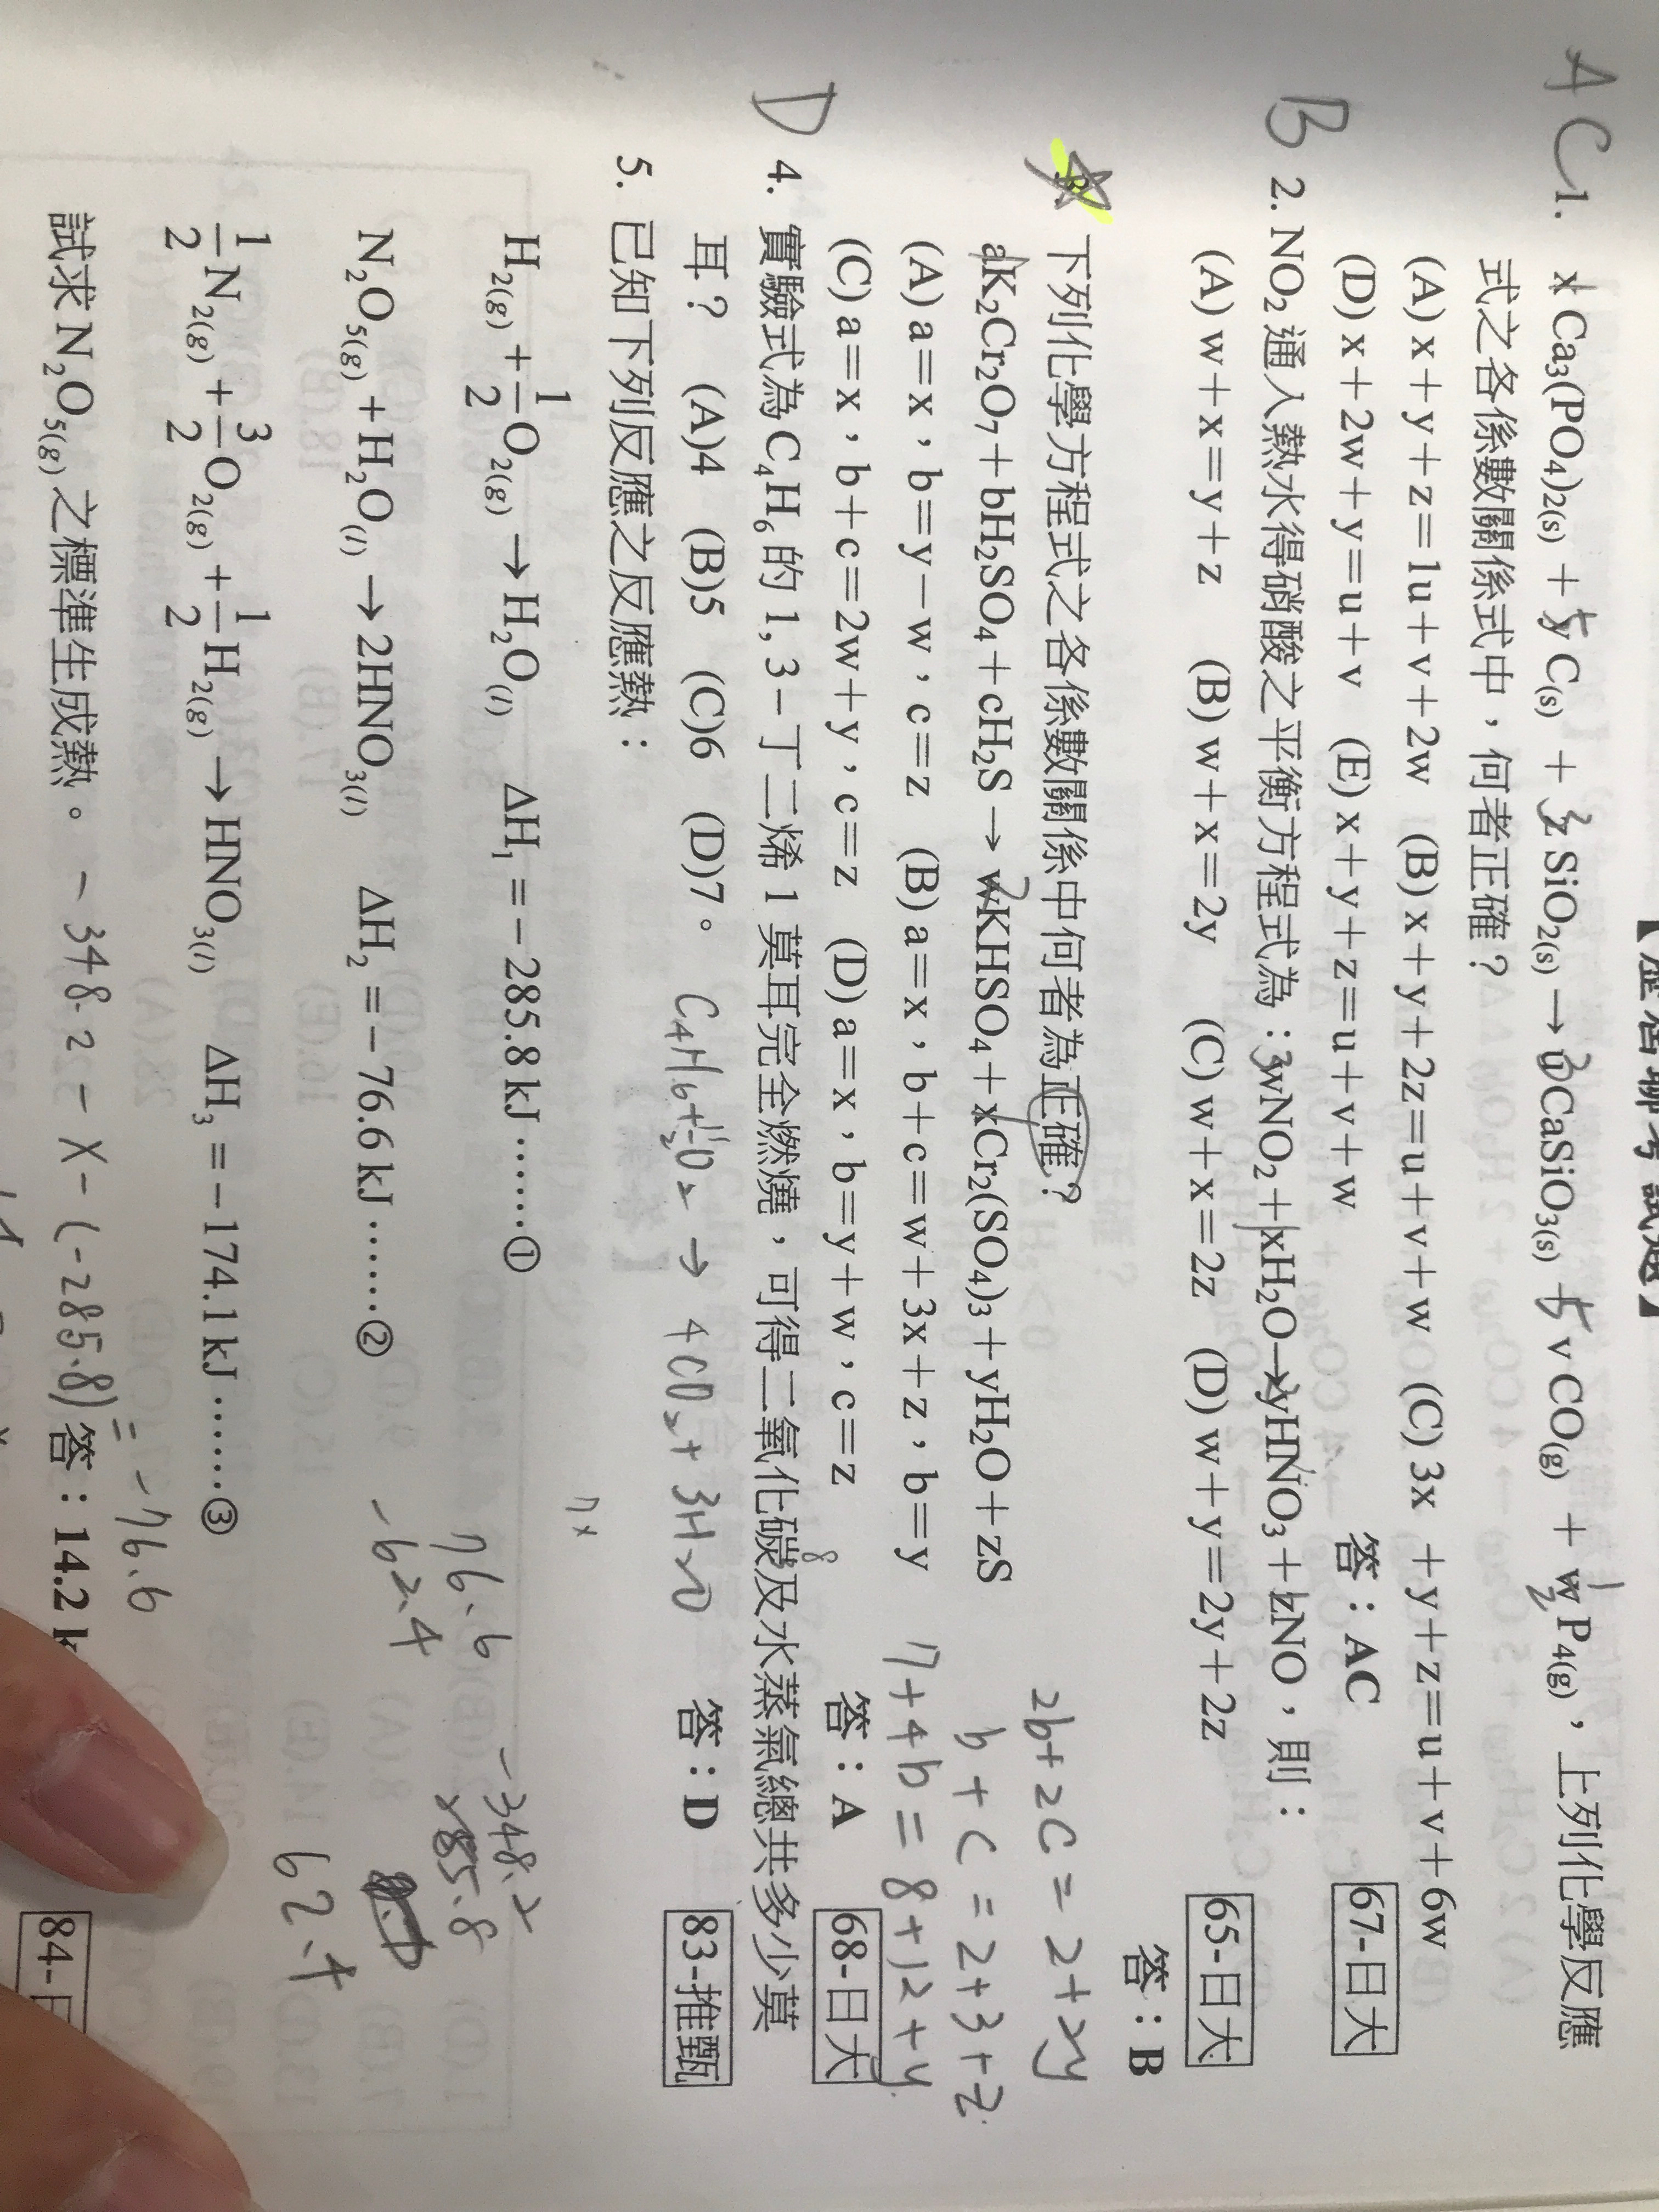 【歷屆聯考試題】
AC 1. x Ca₃(PO₄)₂₍s₎ + 5 y C₍s₎ + 3 z SiO₂₍s₎ → 3 u CaSiO₃₍s₎ + 5 v CO₍g₎ + 1/2 w P₄₍g₎，上列化學反應
式之各係數關係式中，何者正確？
(A) x+y+z=1u+v+2w (B) x+y+2z=u+v+w (C) 3x +y+z=u+v+6w
(D) x+2w+y=u+v (E) x+y+z=u+v+w
答：AC 67-日大
B 2. NO₂ 通入熱水得硝酸之平衡方程式為：3wNO₂+1xH₂O→2yHNO₃+1zNO，則：
(A) w+x=y+z (B) w+x=2y (C) w+x=2z (D) w+y=2y+2z
65-日大
答：B
下列化學方程式之各係數關係中何者為正確？
aK₂Cr₂O₇+bH₂SO₄+cH₂S→2wKHSO₄+xCr₂(SO₄)₃+yH₂O+zS
2b+2c=2+2y
b+c=2+3+z
7+4b=8+12+y
(A) a=x，b=y−w，c=z (B) a=x，b+c=w+3x+z，b=y
(C) a=x，b+c=2w+y，c=z (D) a=x，b=y+w，c=z
答：A 68-日大
D 4. 實驗式為 C₄H₆ 的 1, 3−丁二烯 1 莫耳完全燃燒，可得二氧化碳及水蒸氣總共多少莫
耳？ (A)4 (B)5 (C)6 (D)7。
答：D 83-推甄
C₄H₆+11/2O₂ → 4CO₂+3H₂O
5. 已知下列反應之反應熱：
7x
H₂₍g₎+1/2O₂₍g₎→H₂O₍l₎ ΔH₁=−285.8 kJ ……①
−348.2
285.8
62.4
76.6
−62.4
N₂O₅₍g₎+H₂O₍l₎→2HNO₃₍l₎ ΔH₂=−76.6 kJ ……②
1/2N₂₍g₎+3/2O₂₍g₎+1/2H₂₍g₎→HNO₃₍l₎ ΔH₃=−174.1 kJ ……③
試求 N₂O₅₍g₎之標準生成熱。
−348.2 = X−(−285.8)
=−76.6
答：14.2 k
84-日